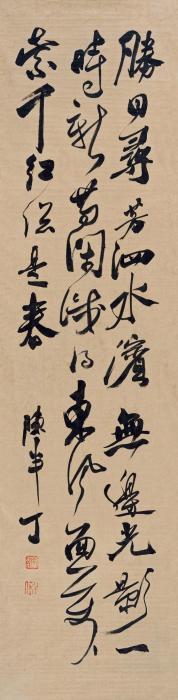 勝日尋芳泗水濱無邊光影一
時新等閑識得東風面萬
紫千紅總是春
陳半丁